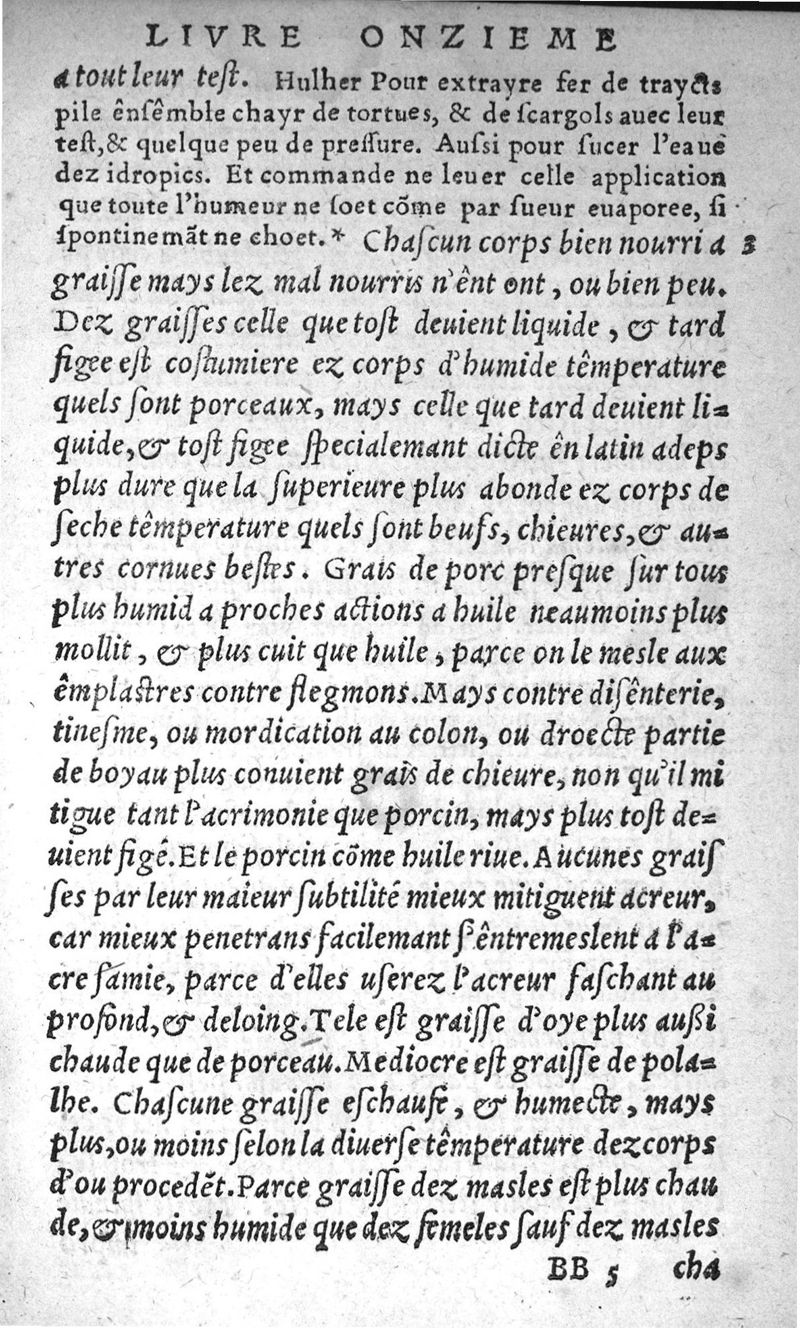 LIVRE ONZIEME
a tout leur test. Hulher Pour extrayre fer de traycts
pile ênsêmble chayr de tortues, & de ſcargols auec leur
teſt,& quelque peu de preſſure. Auſsi pour ſucer l'eaue
dez idropics. Et commande ne leuer celle application
que toute l'humeur ne ſoet cõme par ſueur euaporee, ſi
ſpontinemãt ne choet.* Chaſcun corps bien nourri a 3
graiſſe mays lez mal nourris n'ênt ont, ou bien peu.
Dez graiſſes celle que toſt deuient liquide, & tard
figee eſt coſtumiere ez corps d'humide têmperature
quels ſont porceaux, mays celle que tard deuient li=
quide,& toſt figee ſpecialemant dicte ên latin adeps
plus dure que la ſuperieure plus abonde ez corps de
ſeche têmperature quels ſont beufs, chieures,& au=
tres cornues beſtes. Grais de porc preſque ſur tous
plus humid a proches actions a huile neaumoins plus
mollit, & plus cuit que huile, parce on le mesle aux
êmplaſtres contre flegmons. Mays contre diſênterie,
tineſme, ou mordication au colon, ou droecte partie
de boyau plus conuient grais de chieure, non qu'il mi
tigue tant l'acrimonie que porcin, mays plus toſt de=
uient figé. Et le porcin cõme huile riue. Aucunes graiſ
ſes par leur maieur ſubtilité mieux mitiguent acreur,
car mieux penetrans facilemant ſ'êntremeslent a l'a=
cre ſamie, parce d'elles uſerez l'acreur faſchant au
profond,& deloing. Tele eſt graiſſe d'oye plus auſsi
chaude que de porceau. Mediocre eſt graiſſe de pola=
lhe. Chaſcune graiſſe eſchaufe, & humecte, mays
plus, ou moins ſelon la diuerſe têmperature dez corps
d'ou procedẽt. Parce graiſſe dez masles eſt plus chau
de,& moins humide que dez femeles ſauf dez masles
BB 5 cha